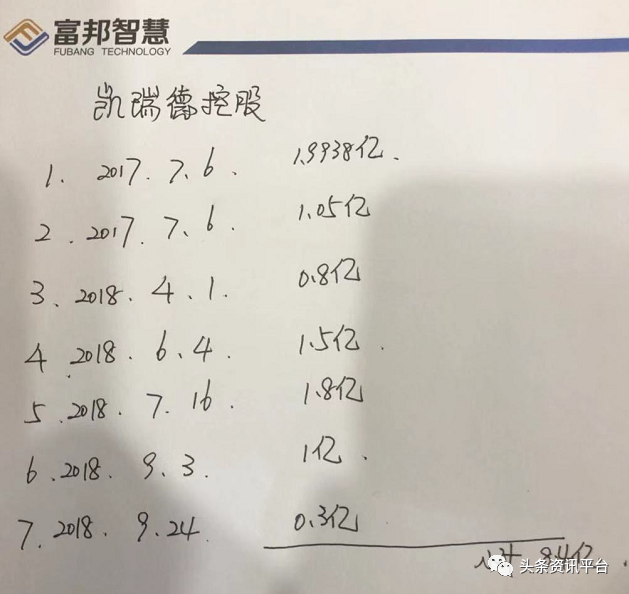 富邦智慧
FUBANG TECHNOLOGY
凯瑞德控股
1. 2017.7.6. 1.9938亿.
2. 2017.7.6. 1.05亿
3、2018.4.1. 0.8亿
4 2018.6.4. 1.5亿.
5.2018.7.16. 1.8亿
6.2018.9.3. 1亿.
7.2018.9.24. 0.3亿
8.4亿
头条资讯平台